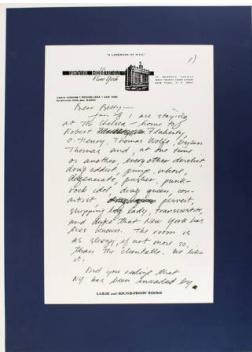 "A LANDMARK OF NOTE"
1)
HOTEL CHELSEA
New York
Dear Betty —
Jon & I are staying
at the Chelsea — home of
Robert Flaherty,
O. Henry, Thomas Wolfe, Dylan
Thomas and, at one time
or another, every other derelict,
drug addict, pimp,
degenerate, pusher, punk-
rock idol, drag queen, con-
artist, pervert,
shopping bag lady, transvestite,
and dope that New York has
ever known. The room is
as sleazy, if not more so,
than the clientele. We like
it.
Did you realize that
NY has been invaded by
LARGE and SOUND-PROOF ROOMS